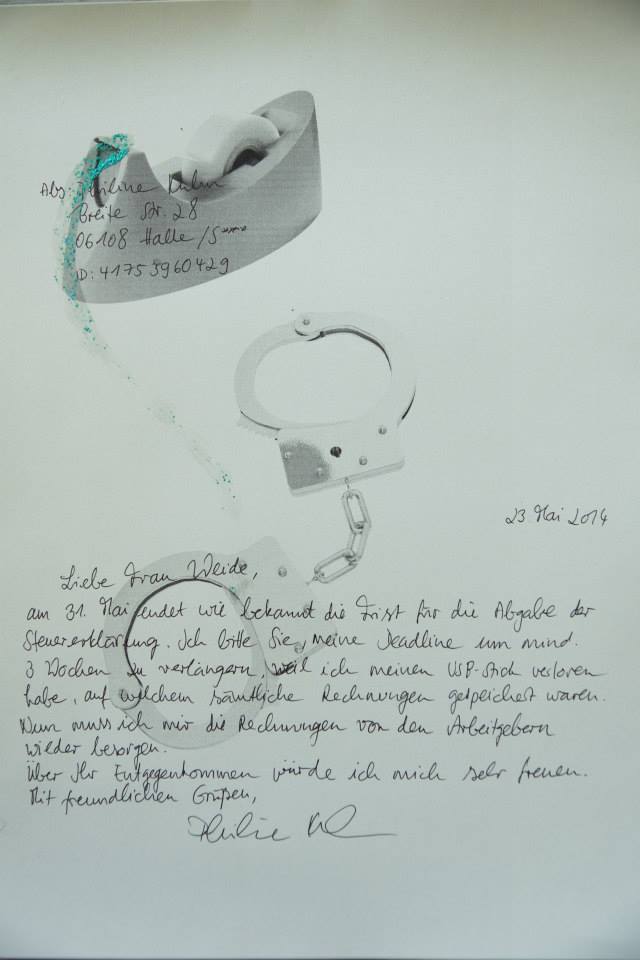 Abs: Philine Kuhn
Breite Str. 28
06108 Halle / Saale
ID: 41753960429
23. Mai 2014
Liebe Frau Weide,
am 31. Mai endet wie bekannt die Frist für die Abgabe der
Steuererklärung. Ich bitte Sie, meine Deadline um mind.
3 Wochen zu verlängern, weil ich meinen USP-Stick verloren
habe, auf welchem sämtliche Rechnungen gespeichert waren.
Nun muss ich mir die Rechnungen von den Arbeitgebern
wieder besorgen.
Über Ihr Entgegenkommen würde ich mich sehr freuen.
Mit freundlichen Grüßen,